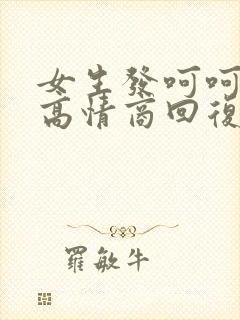 女生發呵呵
高情商回復
羅敏牛